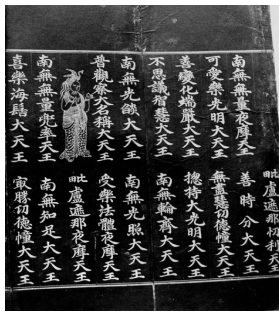 南無無量夜摩大天王
可愛樂光明大天王
善變化端嚴大天王
不思議智慧大天王
南無光燄大天王
普觀察大名稱大天王
南無無量兜率天王
喜樂海髻大天王
毗盧遮那忉利天王
善時分大天王
無盡慧功德幢大天王
揔持大光明大天王
南無輪齊大天王
南無光照大天王
受樂法體夜摩天王
毗盧遮那夜摩天王
南無知足大天王
㝡勝功德幢大天王